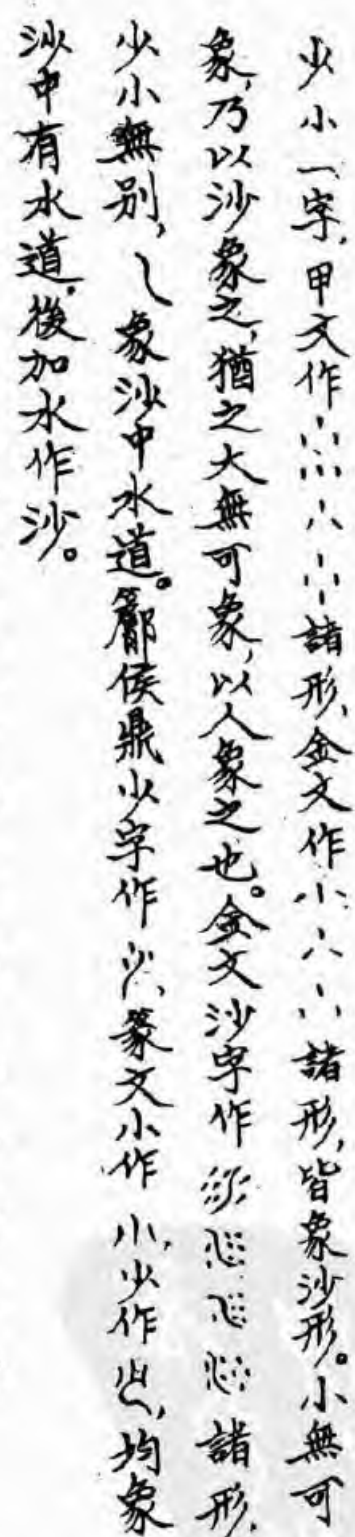 少小一字，甲文作諸形，金文作小八諸形，皆象沙形。小無可
象，乃以沙象之，猶之大無可象，以人象之也。金文沙字作諸形，
少小無别，乀象沙中水道。鄺侯鼎少字作，篆文小作小，少作，均象
沙中有水道，後加水作沙。